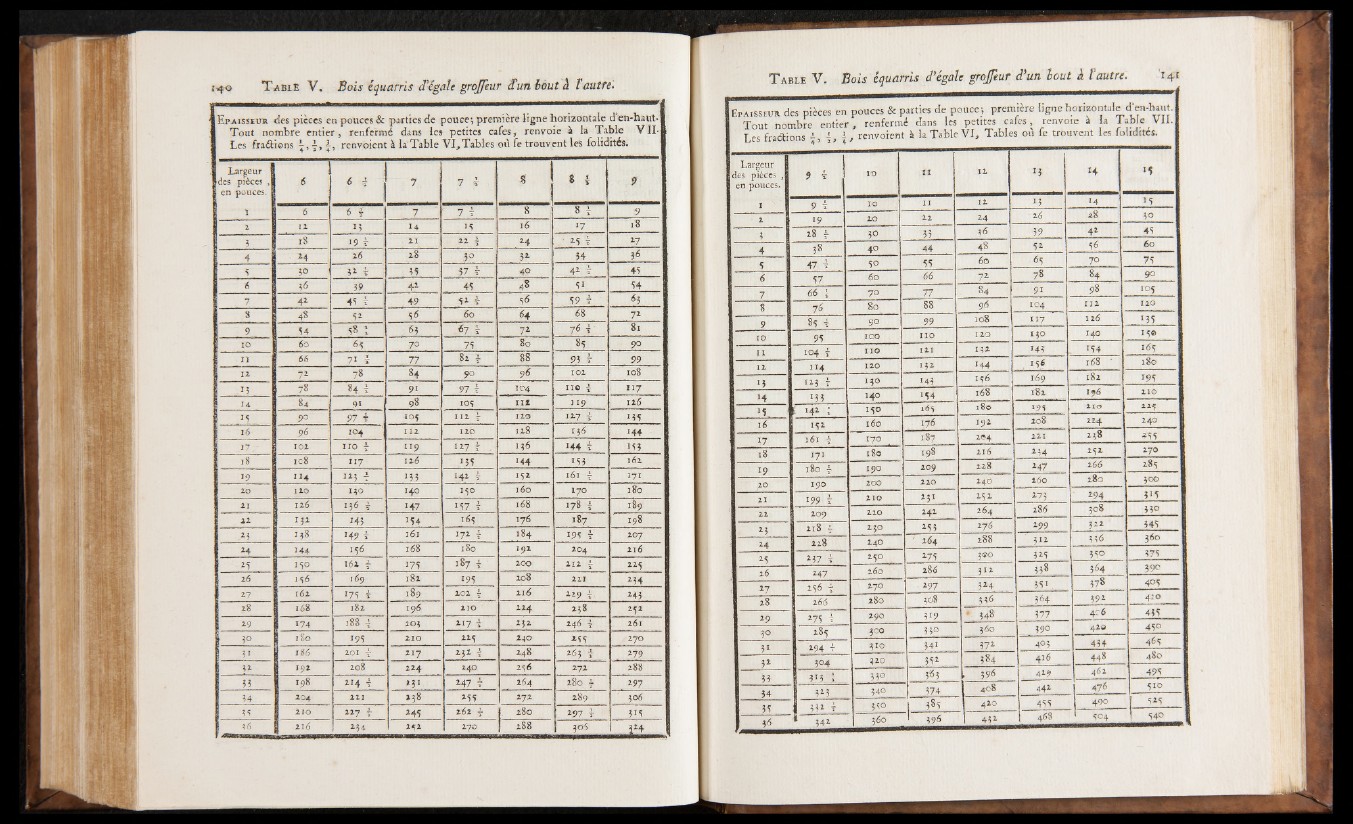 140 TABLE V. Bois équarris d'égale groſſeur d'un bout à l'autre.
EPAISSEUR des pièces en pouces & parties de pouce; première ligne horizontale d'en-haut.
Tout nombre entier, renfermé dans les petites caſes, renvoie à la Table VII.
Les fractions ¼, ½, ¾, renvoient à la Table VI, Tables où ſe trouvent les ſolidités.
Largeur
des pièces,
en pouces.
6 6 ½ 7 7 ½ 8 8 ½ 9
1 6 6 ½ 7 7 ½ 8 8 ½ 9
2 12 13 14 15 16 17 18
3 18 19 ½ 21 22 ½ 24 25 ½ 27
4 24 26 28 30 32 34 36
5 30 32 ½ 35 37 ½ 40 42 ½ 45
6 36 39 42 45 48 51 54
7 42 45 ½ 49 52 ½ 56 59 ½ 63
8 48 52 56 60 64 68 72
9 54 58 ½ 63 67 ½ 72 76 ½ 81
10 60 65 70 75 80 85 90
11 66 71 ½ 77 82 ½ 88 93 ½ 99
12 72 78 84 90 96 102 108
13 78 84 ½ 91 97 ½ 104 110 ½ 117
14 84 91 98 105 112 119 126
15 90 97 ½ 105 112 ½ 120 127 ½ 135
16 96 104 112 120 128 136 144
17 102 110 ½ 119 127 ½ 136 144 ½ 153
18 108 117 126 135 144 153 162
19 114 123 ½ 133 142 ½ 152 161 ½ 171
20 120 130 140 150 160 170 180
21 126 136 ½ 147 157 ½ 168 178 ½ 189
22 132 143 154 165 176 187 198
23 138 149 ½ 161 172 ½ 184 195 ½ 207
24 144 156 168 180 192 204 216
25 150 162 ½ 175 187 ½ 200 212 ½ 225
26 156 169 182 195 208 221 234
27 162 175 ½ 189 202 ½ 216 229 ½ 243
28 168 182 196 210 224 238 252
29 174 188 ½ 203 217 ½ 232 246 ½ 261
30 180 195 210 225 240 255 270
31 186 201 ½ 217 232 ½ 248 263 ½ 279
32 192 208 224 240 256 272 288
33 198 214 ½ 231 247 ½ 264 280 ½ 297
34 204 221 238 255 272 289 306
35 210 227 ½ 245 262 ½ 280 297 ½ 315
36 216 234 252 270 288 306 324
TABLE V. Bois équarris d'égale groſſeur d'un bout à l'autre. 141
EPAISSEUR des pièces en pouces & parties de pouce; première ligne horizontale d'en-haut.
Tout nombre entier, renfermé dans les petites caſes, renvoie à la Table VII.
Les fractions ¼, ½, ¾, renvoient à la Table VI, Tables où ſe trouvent les ſolidités.
Largeur
des pièces,
en pouces.
9 ½ 10 11 12 13 14 15
1 9 ½ 10 11 12 13 14 15
2 19 20 22 24 26 28 30
3 28 ½ 30 33 36 39 42 45
4 38 40 44 48 52 56 60
5 47 ½ 50 55 60 65 70 75
6 57 60 66 72 78 84 90
7 66 ½ 70 77 84 91 98 105
8 76 80 88 96 104 112 120
9 85 ½ 90 99 108 117 126 135
10 95 100 110 120 130 140 150
11 104 ½ 110 121 132 143 154 165
12 114 120 132 144 156 168 180
13 123 ½ 130 143 156 169 182 195
14 133 140 154 168 182 196 210
15 142 ½ 150 165 180 195 210 225
16 152 160 176 192 208 224 240
17 161 ½ 170 187 204 221 238 255
18 171 180 198 216 234 252 270
19 180 ½ 190 209 228 247 266 285
20 190 200 220 240 260 280 300
21 199 ½ 210 231 252 273 294 315
22 209 220 242 264 286 308 330
23 218 ½ 230 253 276 299 322 345
24 228 240 264 288 312 336 360
25 237 ½ 250 275 300 325 350 375
26 247 260 286 312 338 364 390
27 256 ½ 270 297 324 351 378 405
28 266 280 308 336 364 392 420
29 275 ½ 290 319 348 377 406 435
30 285 300 330 360 390 420 450
31 294 ½ 310 341 372 403 434 465
32 304 320 352 384 416 448 480
33 313 ½ 330 363 396 429 462 495
34 323 340 374 408 442 476 510
35 332 ½ 350 385 420 455 490 525
36 342 360 396 432 468 504 540